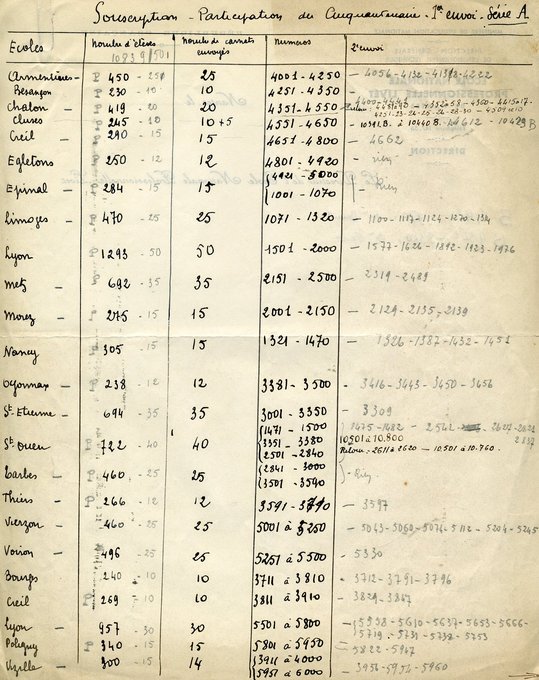 Souscription - Participation du Cinquantenaire - 1er envoi - Série A
Ecoles Nombre d'élèves Nombre de carnets envoyés Numéros 2e envoi
Armentières - 450 - 25 25 4001 - 4250 - 4056 - 4132 - 4222
Besançon 230 - 10 10 4251 - 4350
Chalon - 419 - 20 20 4351 - 4550
Cluses 245 - 10 10 + 5 4551 - 4650 10391 B. à 10440 B.
Creil - 290 - 15 15 4651 - 4800 - 4662
Egletons 250 - 12 12 4801 - 4920 - rien
Epinal - 284 - 15 15 4921 - 5000 - Rien
1001 - 1070
Limoges - 470 - 25 25 1071 - 1320 - 1100 - 1117 - 1124 - 1270 - 1314
Lyon 1293 - 50 50 1501 - 2000 - 1577 - 1626 - 1892 - 1923 - 1976
Metz - 692 - 35 35 2151 - 2500 - 2319 - 2489
Morez - 275 - 15 15 2001 - 2150 - 2129 - 2135 - 2139
Nancy 305 - 15 15 1321 - 1470 - 1326 - 1387 - 1432 - 1451
Oyonnax - 238 - 12 12 3381 - 3500 - 3416 - 3443 - 3450 - 3456
St. Etienne - 694 - 35 35 3001 - 3350 - 3309
1471 - 1500 1475 - 1482
St. Ouen 722 - 40 40 3351 - 3380 10.501 à 10.800
2501 - 2840 Retour - 2611 à 2620 - 10.501 à 10.760.
Tarbes - 460 - 25 25 2841 - 3000 - Rien
3501 - 3590
Thiers - 266 - 12 12 3591 - 3710 - 3597
Vierzon - 460 - 25 25 5001 à 5250 - 5043 - 5060 - 5074 - 5112 - 5204 - 5245
Voiron - 496 - 25 25 5251 à 5500 - 5330
Bourges 240 - 10 10 3711 à 3810 - 3712 - 3791 - 3796
Creil - 269 - 10 10 3811 à 3910 - 3829 - 3867
Lyon - 957 - 30 30 5501 à 5800 - 5538 - 5610 - 5637 - 5653 - 5666 -
5719 - 5731 - 5738 - 5753
Poligny 340 - 15 15 5801 à 5950 - 5822 - 5947
Vizille - 300 - 15 14 3911 à 4000 - 3956 - 5952 - 5960
5951 à 6000